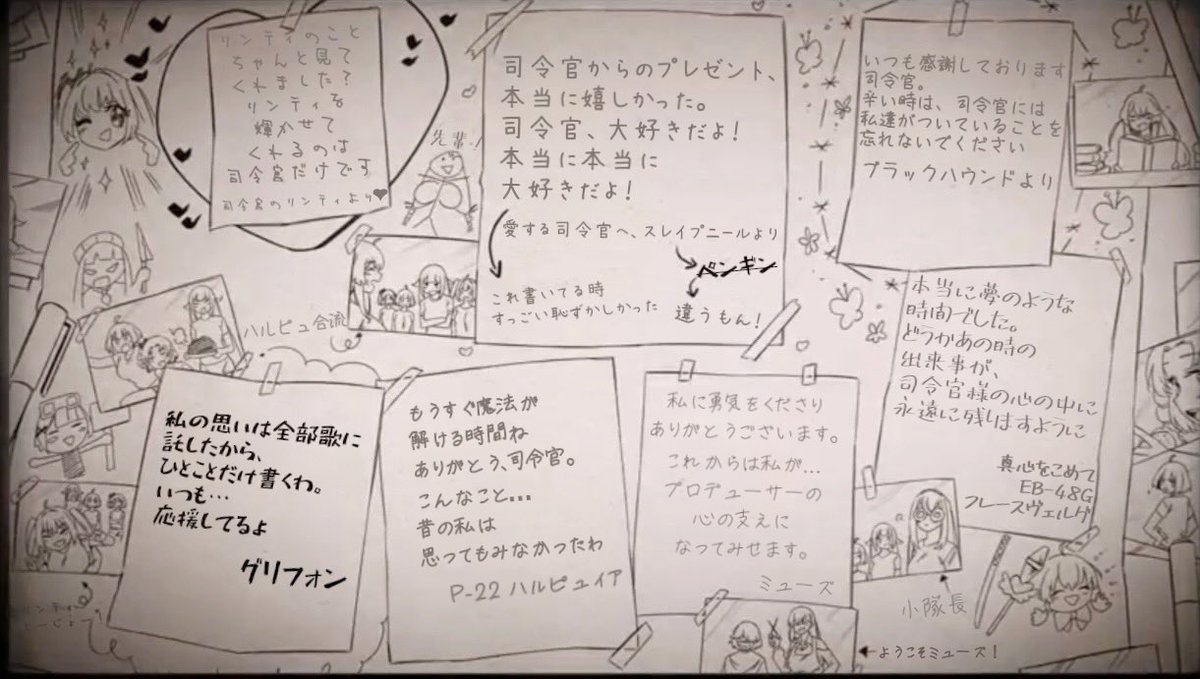 リンティのこと
ちゃんと見て
くれました?
リンティを
輝かせて
くれるのは
司令官だけです
司令官のリンティより♥
先輩!
司令官からのプレゼント、
本当に嬉しかった。
司令官、大好きだよ!
本当に本当に
大好きだよ!
愛する司令官へ、スレイプニールより
ペンギン
違うもん!
これ書いてる時
すっごい恥ずかしかった
いつも感謝しております
司令官。
辛い時は、司令官には
私達がついていることを
忘れないでください
ブラックハウンドより
ハルピュ合流
本当に夢のような
時間でした。
どうかあの時の
出来事が、
司令官様の心の中に
永遠に残りますように
真心をこめて
EB-48G
フレースヴェルグ
私の思いは全部歌に
託したから、
ひとことだけ書くわ。
いつも…
応援してるよ
グリフォン
もうすぐ魔法が
解ける時間ね
ありがとう、司令官。
こんなこと…
昔の私は
思ってもみなかったわ
P-22 ハルピュイア
私に勇気をくださり
ありがとうございます。
これからは私が…
プロデューサーの
心の支えに
なってみせます。
ミューズ
小隊長
←ようこそミューズ!
リンティ